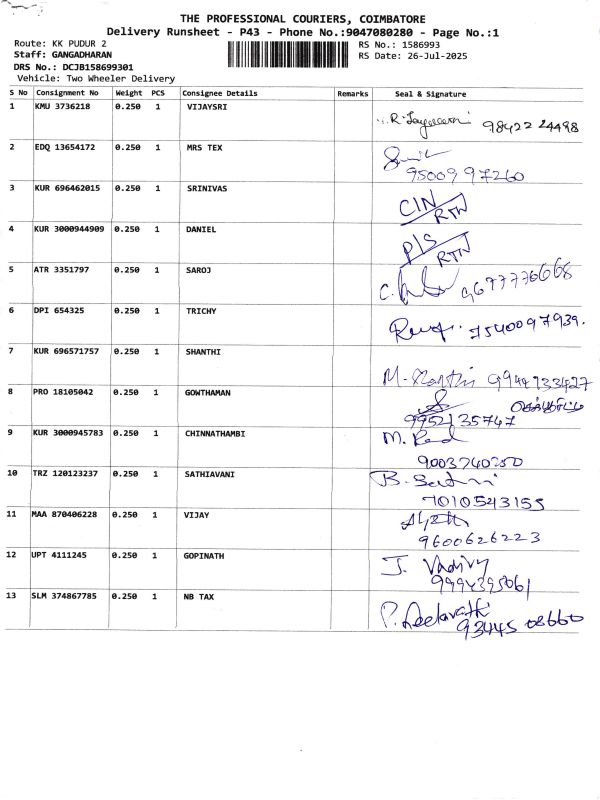 THE PROFESSIONAL COURIERS, COIMBATORE
Delivery Runsheet - P43 - Phone No.:9047080280 - Page No.:1
Route: KK PUDUR 2
Staff: GANGADHARAN
DRS No.: DCJB158699301
Vehicle: Two Wheeler Delivery
RS No.: 1586993
RS Date: 26-Jul-2025
S No Consignment No Weight PCS Consignee Details Remarks Seal & Signature
1 KMU 3736218 0.250 1 VIJAYSRI 98422 24498
2 EDQ 13654172 0.250 1 MRS TEX
9500997260
3 KUR 696462015 0.250 1 SRINIVAS CIN
RTN
4 KUR 3000944909 0.250 1 DANIEL P/S
RTN
5 ATR 3351797 0.250 1 SAROJ 9677776668
6 DPI 654325 0.250 1 TRICHY 7540097939.
7 KUR 696571757 0.250 1 SHANTHI
M. 9944933427
8 PRO 18105042 0.250 1 GOWTHAMAN
9952135747
9 KUR 3000945783 0.250 1 CHINNATHAMBI M.
9003740250
10 TRZ 120123237 0.250 1 SATHIAVANI B.
7010543155
11 MAA 870406228 0.250 1 VIJAY
9600626223
12 UPT 4111245 0.250 1 GOPINATH J.
9994395061
13 SLM 374867785 0.250 1 NB TAX P. Leelavathi
93445 08660